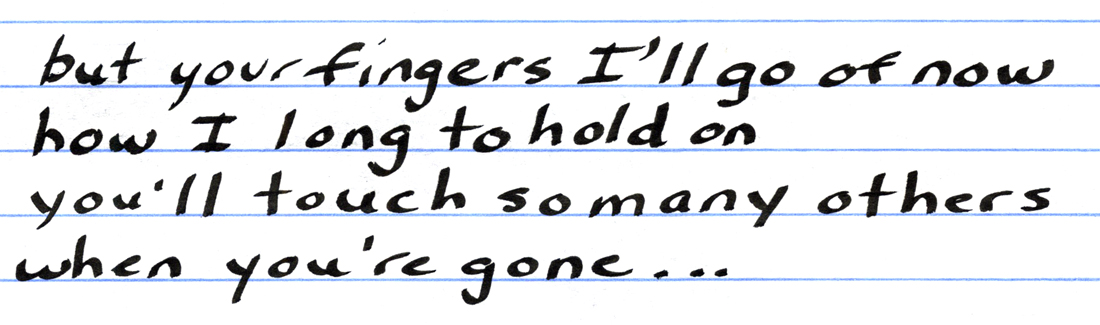 but your fingers I'll go of now
how I long to hold on
you'll touch so many others
when you're gone...